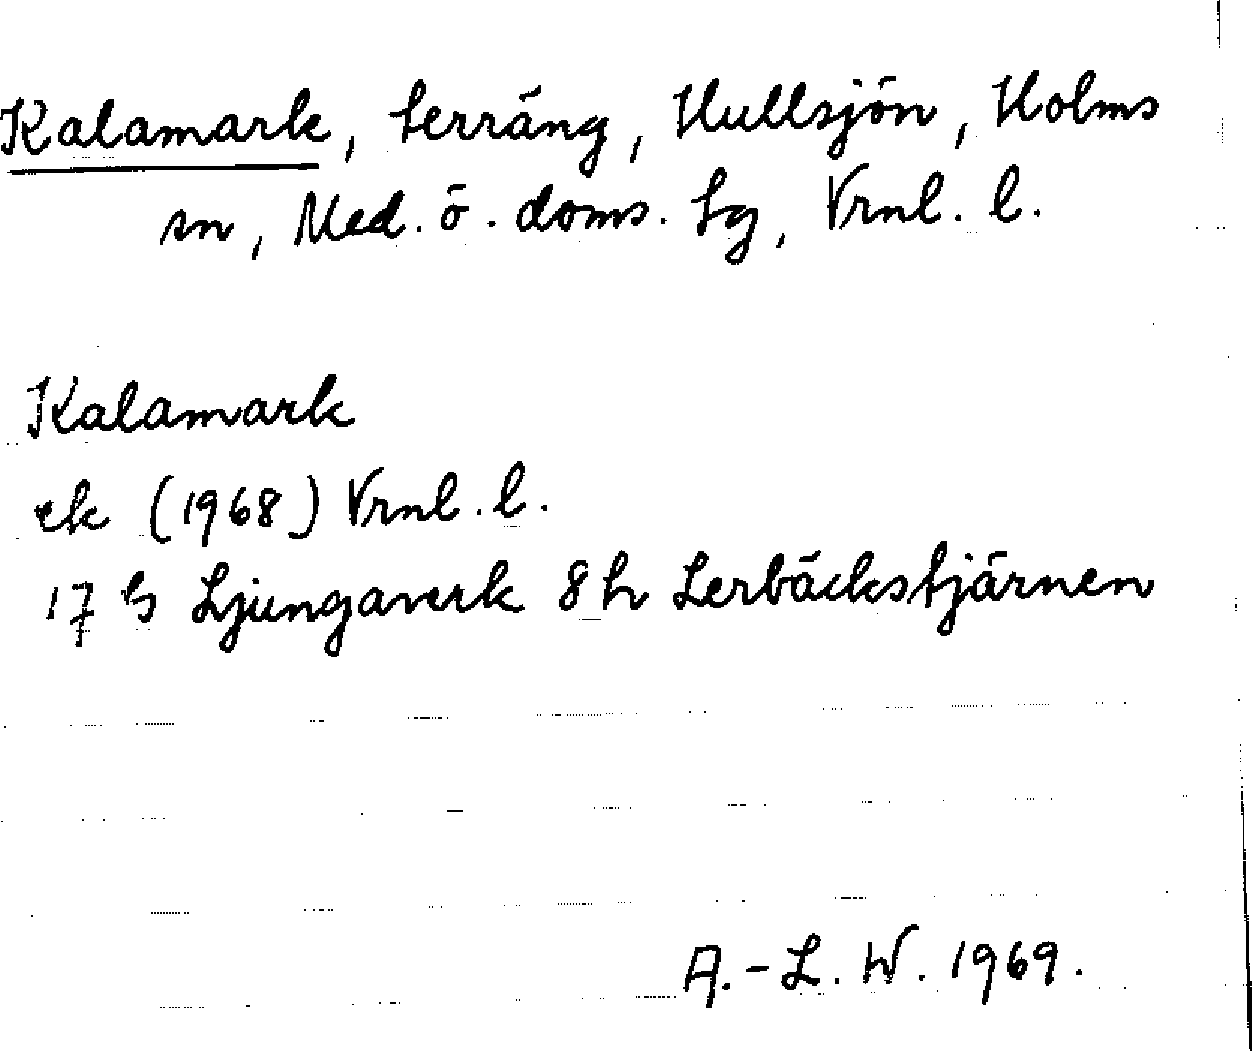 Kalamark, terräng, Hullsjön, Holms
sn, Med. ö. doms. tg, Vrnl. l.
Kalamark
ek (1968) Vrnl. l.
17 G Ljungaverk 8 h Lerbäckstjärnen
A.-L. W. 1969.